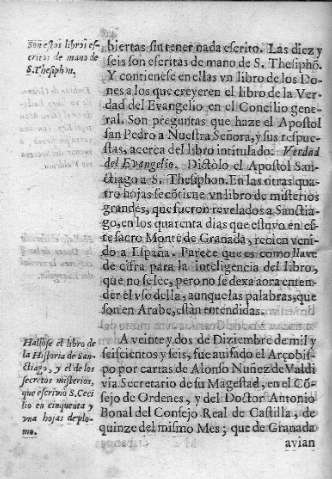 Son estos libros es-
critos de mano de
S. Thesiphon.
biertas sin tener nada escrito. Las diez y
seis son escritas de mano de S. Thesiphõ.
Y contienese en ellas vn libro de los Do-
nes a los que creyeren el libro de la Ver-
dad del Evangelio en el Concilio gene-
ral. Son preguntas que haze el Apostol
san Pedro a Nuestra Señora, y sus respue-
stas, acerca del libro intitulado: Verdad
del Evangelio. Dictòlo el Apostol San-
ctiago a S. Thesiphon. En las otras qua-
tro hojas se cõtiene vn libro de misterios
grandes, que fueron revelados a Sanctia-
go, en los quarenta dias que estuvo en es-
te sacro Monte de Granada, recien veni-
do a España. Parece que es como llave
de cifra para la inteligencia del libro,
que no se lee, pero no se dexa aora enten-
der el vso della, aunque las palabras, que
son en Arabe, estan entendidas.
Hallose el libro de
la Historia de San-
ctiago, y el de los
secretos misterios,
que escrivio S. Ceci
lio en cinquenta y
vna hojas de plo-
mo.
A veinte y dos de Diziembre de mil y
seiscientos y seis, fue avisado el Arçobis-
po por cartas de Alonso Nuñez de Valdi
via Secretario de su Magestad, en el Cõ-
sejo de Ordenes, y del Doctor Antonio
Bonal del Consejo Real de Castilla, de
quinze del mismo Mes; que de Granada
avian